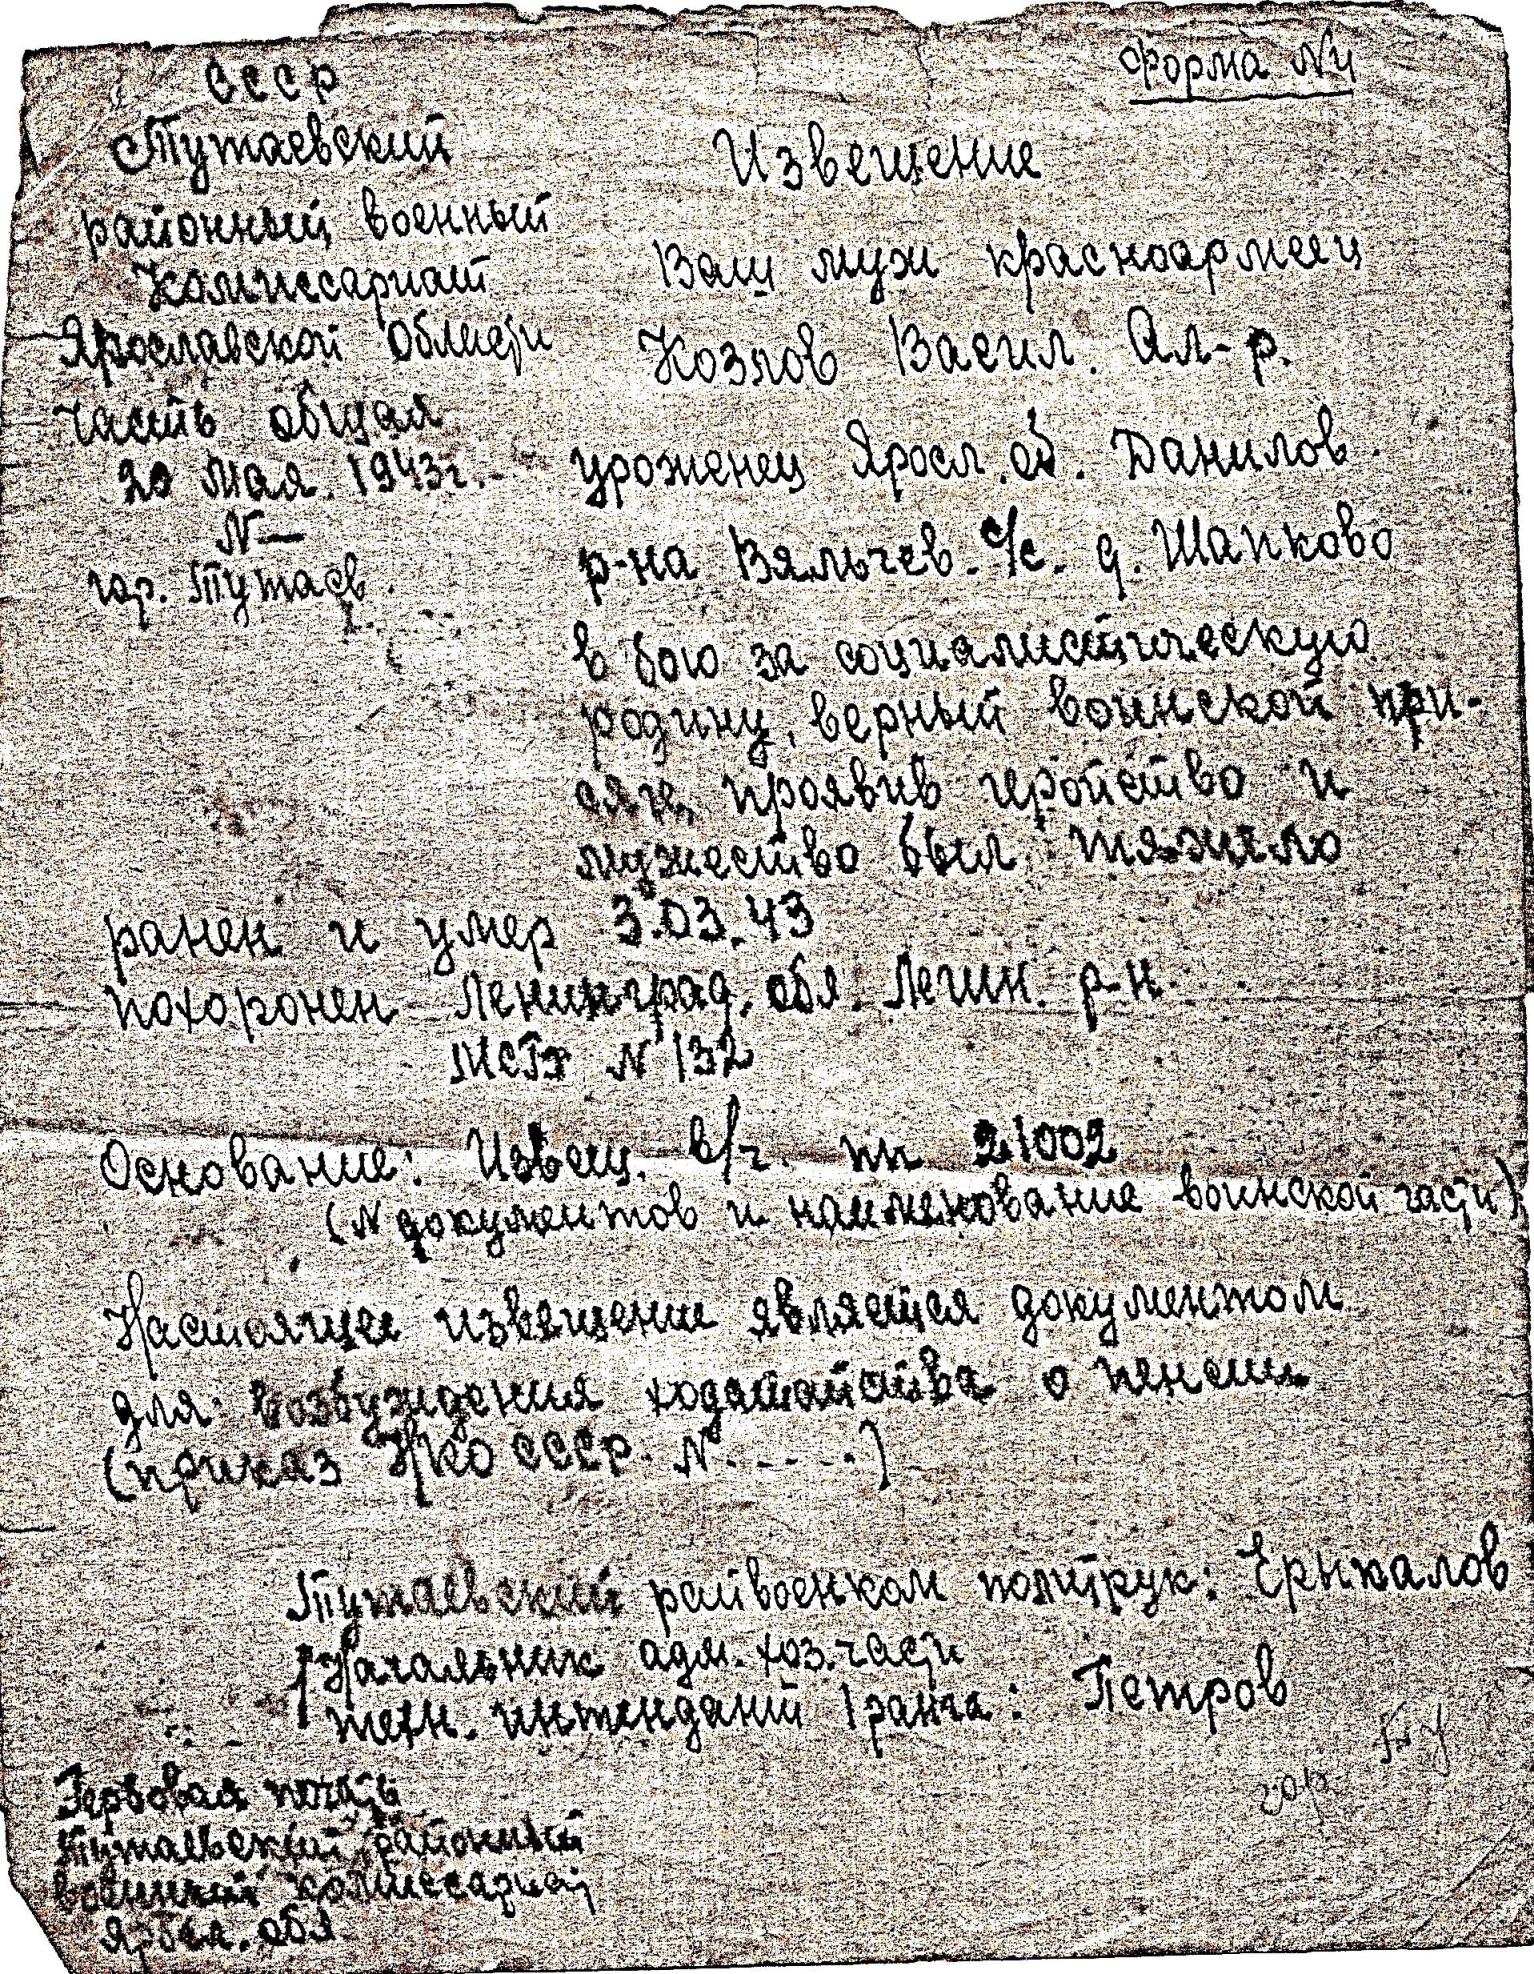 СССР
Тутаевский
районный военный
Комиссариат
Ярославской Области
часть общая
20 мая 1943г.
N —
гор. Тутаев.
Форма N4
Извещение
Ваш муж красноармеец
Козлов Васил. Ал-р.
уроженец Яросл. об. Данилов.
р-на Вяльчев. с/с. д. Шапково
в бою за социалистическую
родину, верный воинской при-
сяге, проявив геройство и
мужество был тяжело
ранен и умер 3.03.43
похоронен Ленинград. обл.
р-н.
N 132
Основание: Извещ. в/ч. пп 21002
(N документов и наименование воинской части)
Настоящее извещение является документом
для возбуждения ходатайства о пенсии
(приказ НКО СССР. N . . . . .)
Тутаевский райвоенком политрук:
Начальник адм. хоз. части
техн. интендант 1 ранга: Петров
Гербовая печать
Тутаевский районный
военный комиссариат
Яросл. обл.